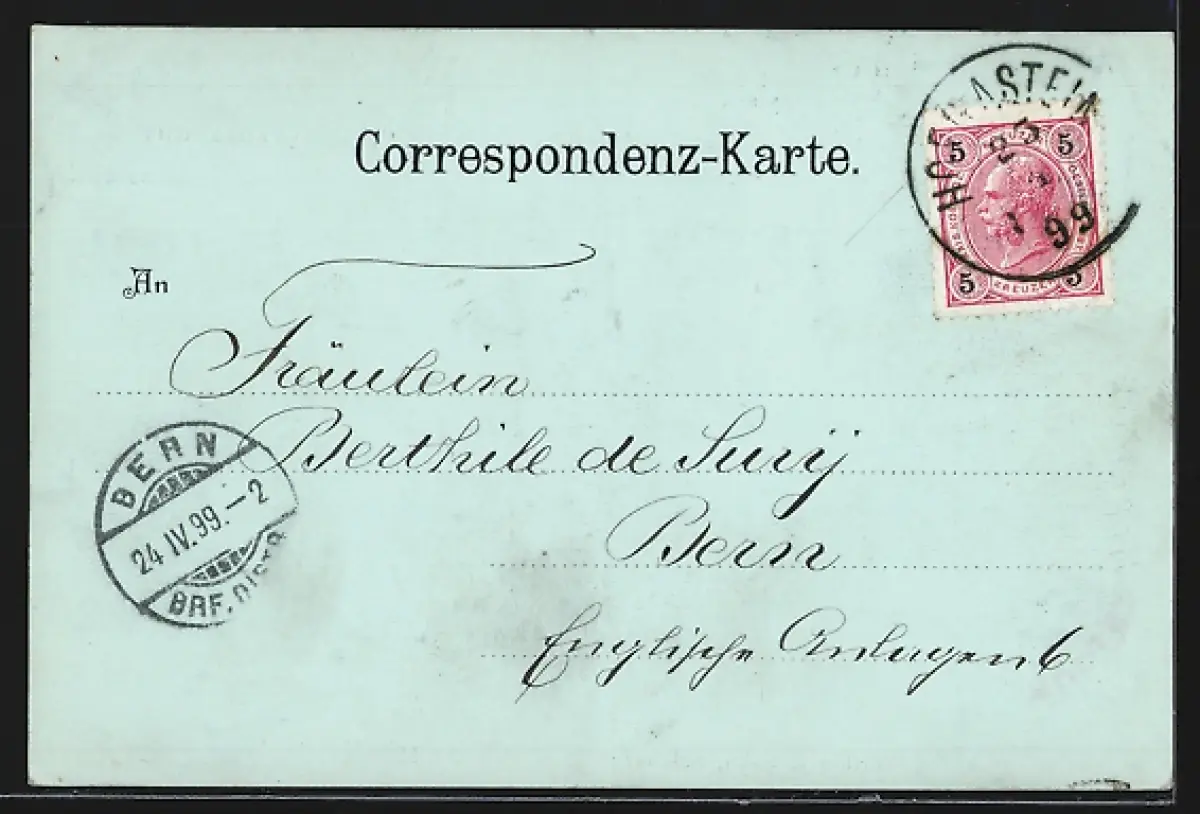 Correspondenz-Karte.
HOFGASTEIN
99
5 5
5 5
KREUZER
An
Fräulein
Berthile de Sury
Bern
Englische Anlagen 6
BERN
24 IV.99.–2
BRF. DISTR.